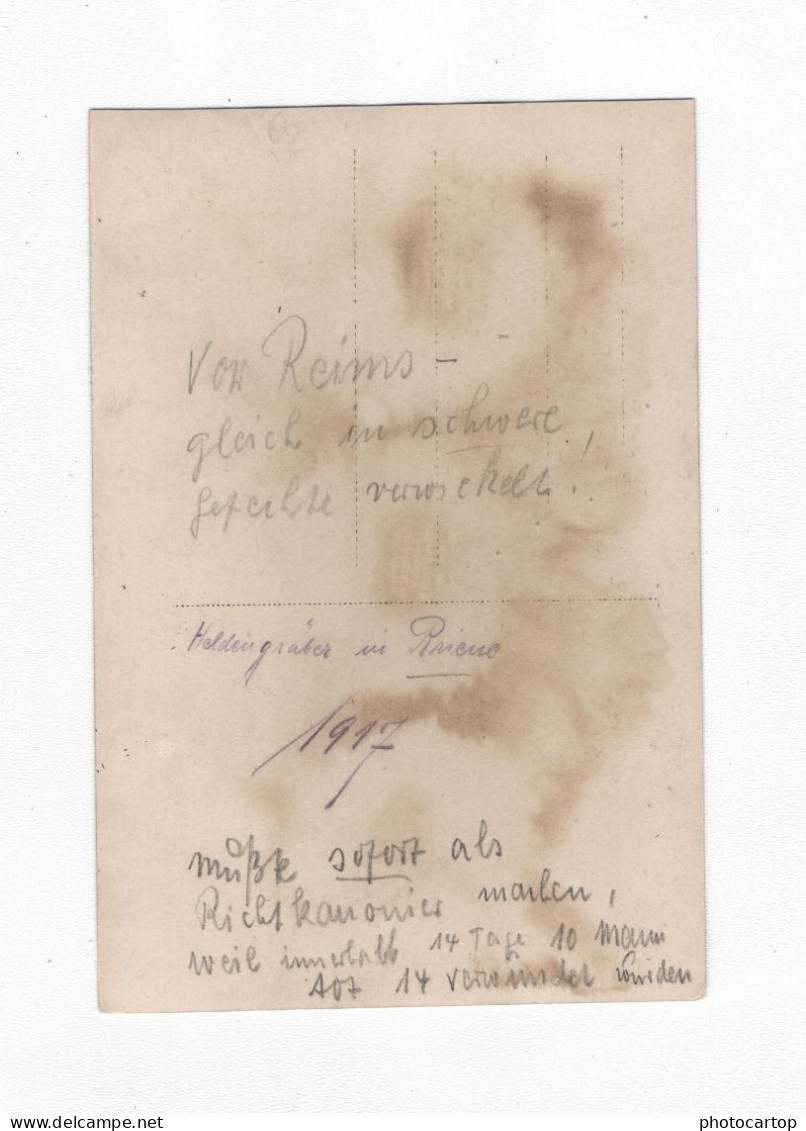 Vor Reims –
gleich in schwere
Gefechte verwickelt!
Heldengräber in Brienne
1917
mußte sofort als
Richtkanonier machen,
weil innerhalb 14 Tage 10 Mann
tot 14 verwundet wurden
photocartop